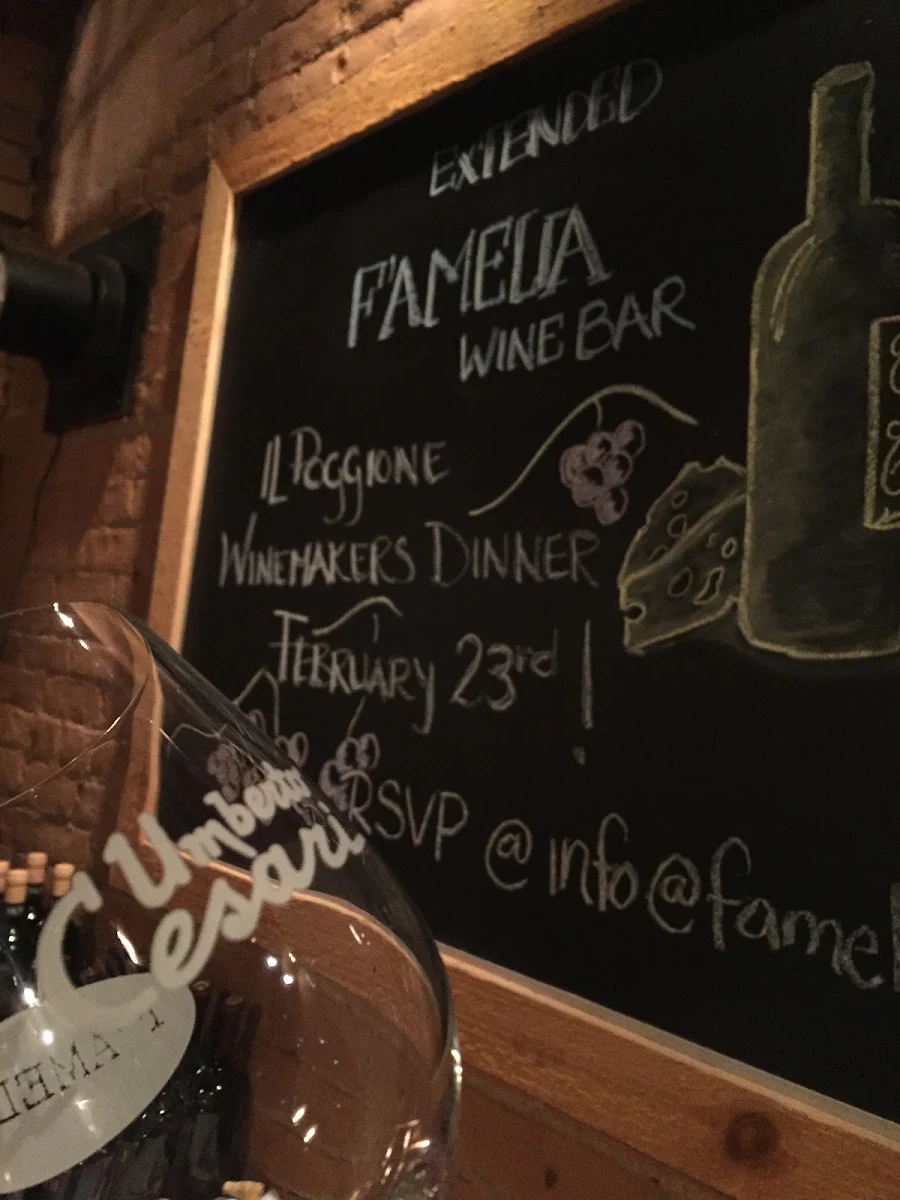 EXTENDED
F'AMELIA
WINE BAR
IL POGGIONE
WINEMAKERS DINNER
FEBRUARY 23rd !
RSVP @ info@famel
Umberto
Cesari